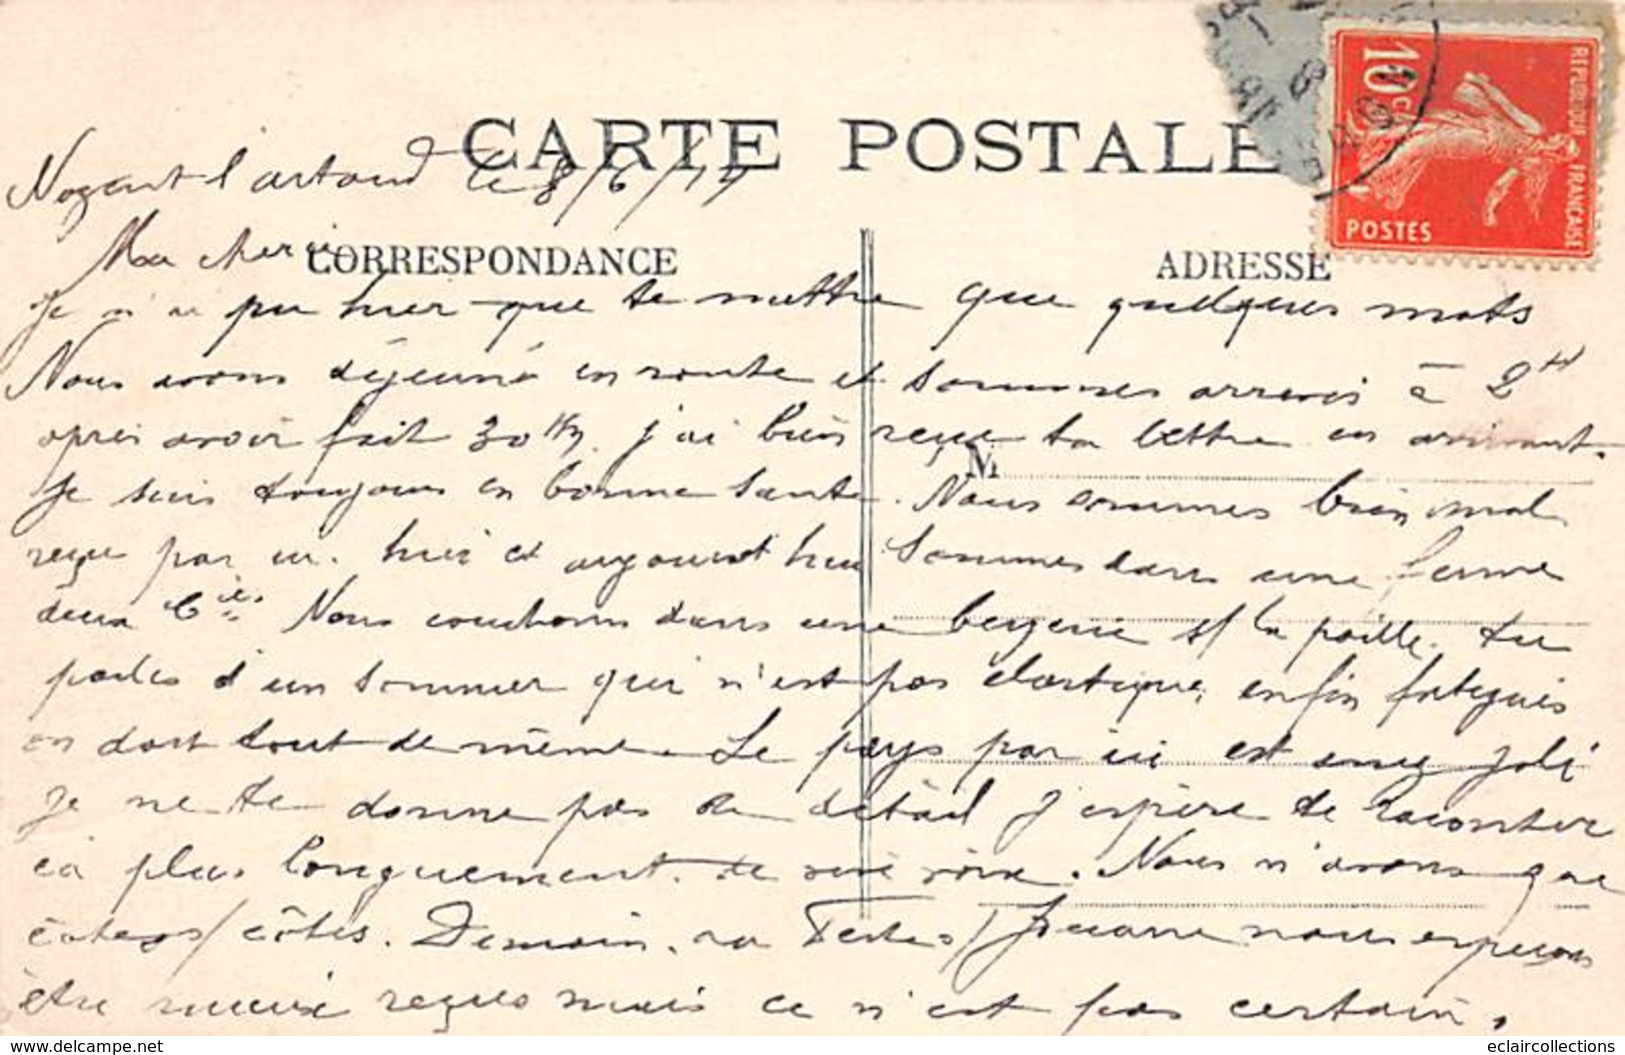 CARTE POSTALE
10 c
REPUBLIQUE FRANÇAISE
POSTES
Nogent l'artaud le 8/6/14
CORRESPONDANCE
ADRESSE
Ma cherie
Je n'ai pu hier que te mettre que quelques mots
Nous avons déjeuné en route et sommes arrivés à 2H
après avoir fait 30 Km. j'ai bien reçu ta lettre en arrivant.
M
Je suis toujours en bonne santé. Nous sommes bien mal
reçu par ici. hier et aujourd'hui sommes dans une ferme
deux Cies. Nous couchons dans une bergerie s/ la paille. tu
parles d'un sommier qui n'est pas élastique, enfin fatigués
on dort tout de même. Le pays par ici est assez joli
je ne te donne pas de détail j'espère te raconter
ça plus longuement de vive voix. Nous n'avons que
côtes s/ côtes. Demain, la Ferté s/ Jouarre nous esperons
être mieux reçus mais ce n'est pas certain.
delcampe.net
eclaircollections